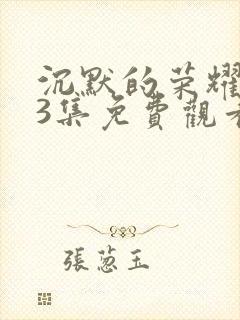 沉默的荣耀
3集免費觀看
張蔥玉